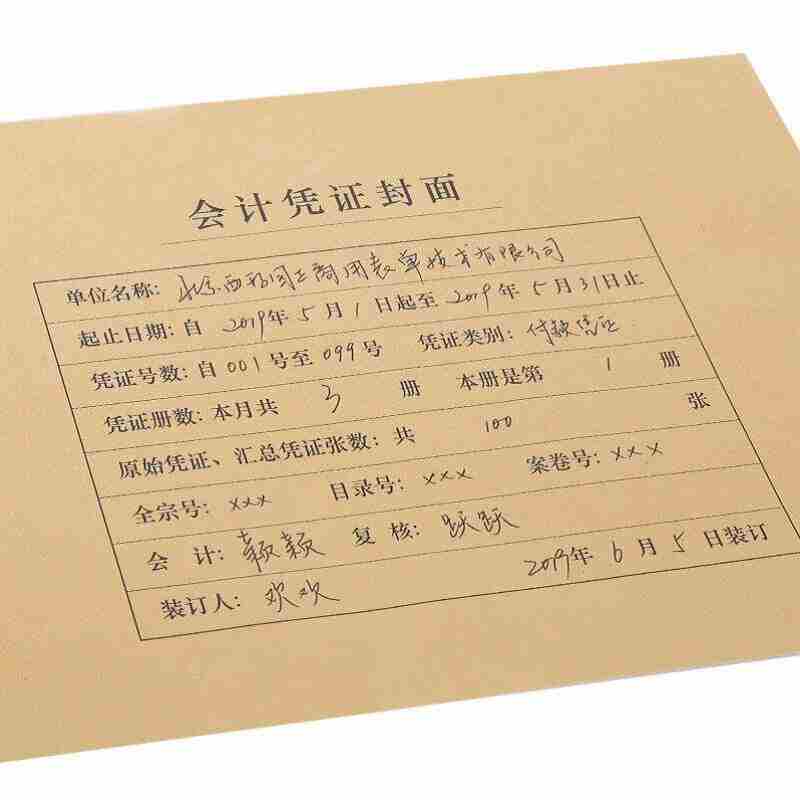 会计凭证封面
单位名称：北京西玛同正商用表单技术有限公司
起止日期：自 2019年 5 月 1 日起至 2019 年 5 月 31日止
凭证号数：自 001 号至 099 号 凭证类别：付款凭证
凭证册数：本月共 3 册 本册是第 1 册
原始凭证、汇总凭证张数：共 100 张
全宗号：xxx 目录号：xxx 案卷号：xxx
会 计：颖颖 复 核：跃跃
装订人：欢欢 2019年 6 月 5 日装订